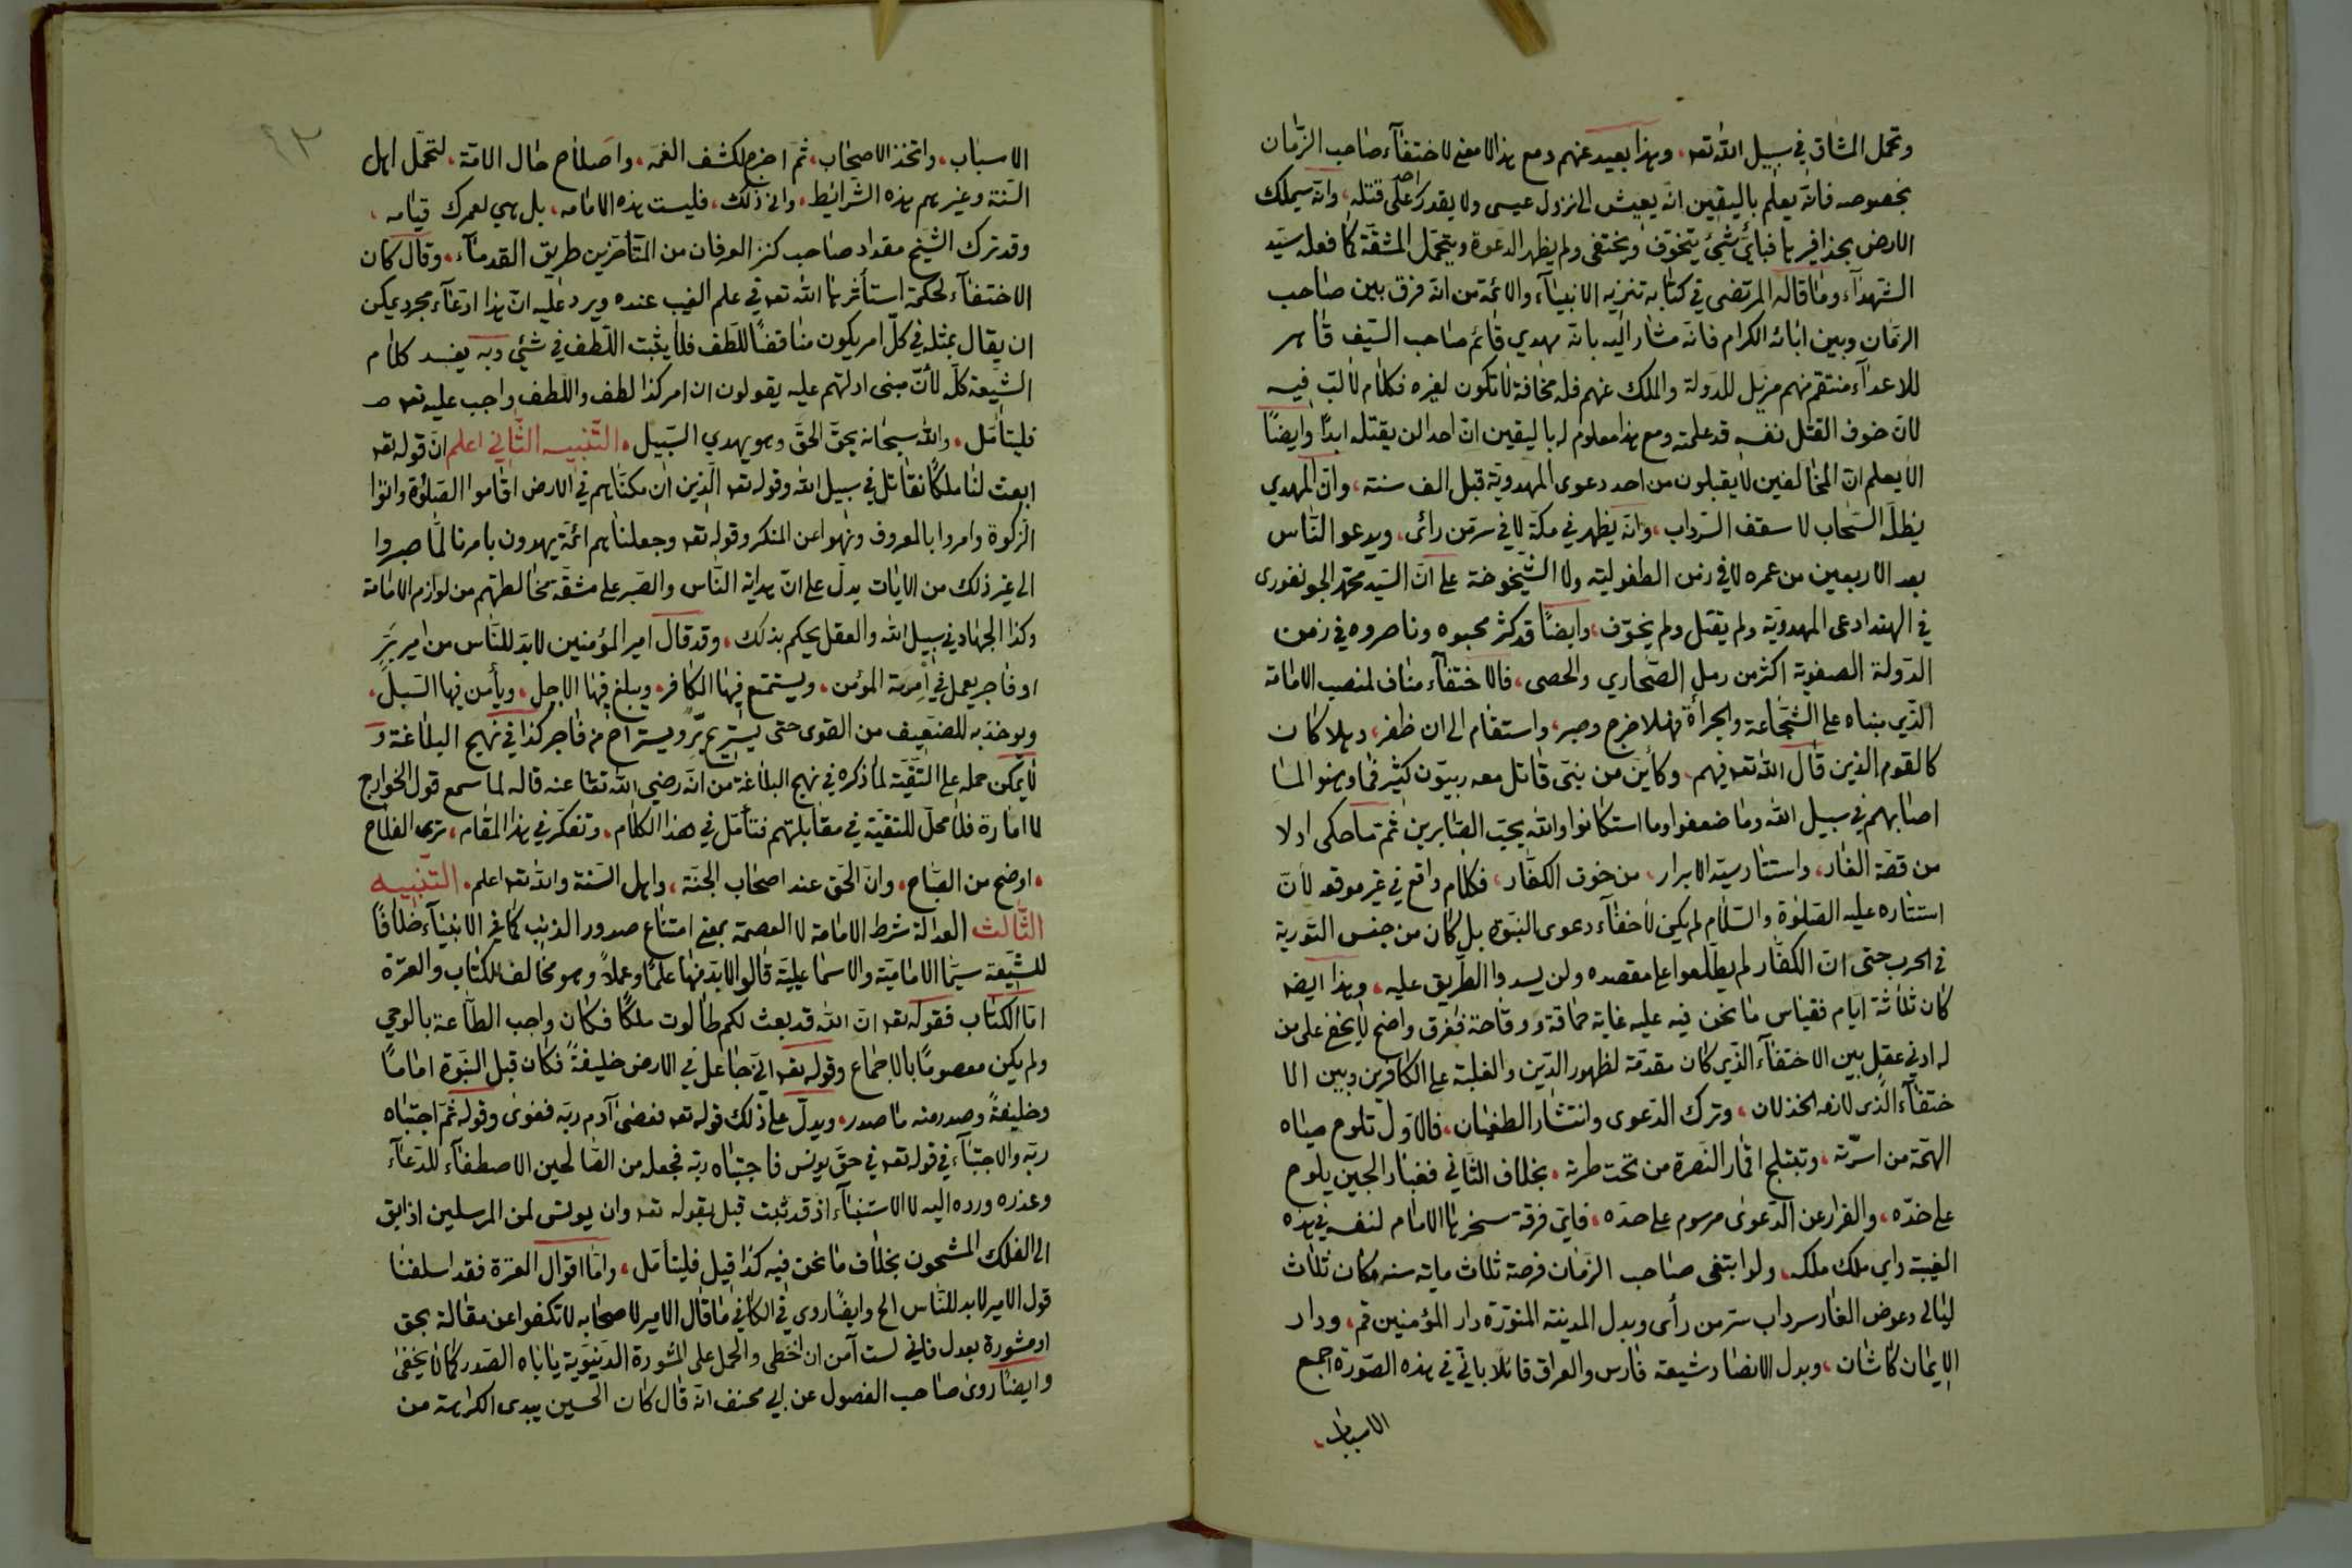 وتحمل المشاق في سبيل الله تعه، وهذا بعيد عنهم ومع هذا لا معنى لاختفآء صاحب الزمان
بخصوصه فانه يعلم باليقين انه يعيش الى نزول عيسى ولا يقدر احد على قتله، وانه سيملك
الارض بحذافيرها فبأي شيئ يتخوف ويختفى ولم يظهر الدعوة ويتحمل المشقة كما فعله سيد
الشهدآء وما قاله المرتضى في كتابه تنزيه الانبيآء والائمة من انه فرق بين صاحب
الزمان وبين ابائه الكرام فانه مشار اليه بانه مهدي قائم صاحب السيف قاهر
للاعدآء منتقم منهم مزيل للدولة والملك عنهم فله مخافة لا تكون لغيره فكلام لا لب فيه
لان خوف القتل نفسه قد علمته ومع هذا معلوم له باليقين ان احدا لن يقتله ابدًا وايضًا
الا يعلم ان المخالفين لا يقبلون من احد دعوى المهدوية قبل الف سنة، وان المهدي
يظله السحاب لا سقف السرداب، وانه يظهر في مكة لا في سر من رائى، ويدعو الناس
بعد الاربعين من عمره لا في زمن الطفولية ولا الشيخوخة على ان السيد محمد الجونفورى
في الهند ادعى المهدوية ولم يقتل ولم يخوف، وايضًا قد كثر محبوه وناصروه في زمن
الدولة الصفوية اكثر من رمل الصحاري والحصى، فالاختفآء مناف لمنصب الامامة
الذي مبناه على الشجاعة والجرأة فهلا خرج وصبر، واستقام الى ان ظفر، وهلا كان
كالقوم الذين قال الله تعه فيهم، وكأين من نبي قاتل معه ربيون كثير فما وهنوا لما
اصابهم في سبيل الله وما ضعفوا وما استكانوا والله يحب الصابرين ثم ما حكى اولا
من قصة الغار، واستتار سيد الابرار، من خوف الكفار، فكلام واقع في غير موقعه لان
استتاره عليه الصلوة والسلام لم يكن لاخفآء دعوى النبوة بل كان من جنس التورية
في الحرب حتى ان الكفار لم يطلعوا على مقصده ولن يسدوا الطريق عليه، وهذا ايضه
كان ثلاثة ايام فقياس ما نحن فيه عليه غاية حماقة ووقاحة ففرق واضح لا يخفى على من
له ادنى عقل بين الاختفآء الذي كان مقدمة لظهور الدين والغلبة على الكافرين وبين الا
ختفآء الذى لازمه الخذلان، وترك الدعوى وانتشار الطغيان، فالاول تلوح مياه
الهمة من اسرته، وتبتلج اقمار النصرة من تحت طرته، بخلاف الثاني فغبار الجبن يلوح
على خده، والفرار عن الدعوى مرسوم على حده، فاي فرقة سخرها الامام لنفسه في هذه
الغيبة واي ملك ملكه، ولو ابتغى صاحب الزمان فرصة ثلاث ماية سنه مكان ثلاث
ليالى وعوض الغار سرداب سر من رأى وبدل المدينة المنورة دار المؤمنين قم، ودار
الايمان كاشان، وبدل الانصار شيعة فارس والعراق قائلا باني في هذه الصورة اجمع
الاسباب،
٤٣
الاسباب، واتخذ الاصحاب، ثم اخرج لكشف الغمه، واصلاح حال الامة، لتحمل اهل
السنة وغيرهم هذه الشرائيط، وانى ذلك، فليست هذه الامامه، بل هي لعمرك قيامه،
وقد ترك الشيخ مقداد صاحب كنز العرفان من المتأخرين طريق القدمآء، وقال كان
الاختفآء لحكمة استأثرها الله تعه في علم الغيب عنده ويرد عليه ان هذا ادعآء مجرد يمكن
ان يقال بمثله في كل امر يكون مناقضًا للطف فلا يثبت اللطف في شئ وبه يفسد كلام
الشيعة كله لأن مبنى ادلتهم عليه يقولون ان امر كذا لطف واللطف واجب عليه تعه
فليتأمل، والله سبحانه يحق الحق وهو يهدي السبيل، التنبيه الثاني اعلم ان قوله تعه
ابعث لنا ملكًا نقاتل في سبيل الله وقوله تعه الذين ان مكناهم في الارض اقاموا الصلوة واتوا
الزكوة وامروا بالمعروف ونهوا عن المنكر وقوله تعه وجعلناهم ائمة يهدون بامرنا لما صبروا
الى غير ذلك من الايات يدل على ان هداية الناس والصبر على مشقة مخالطتهم من لوازم الامامة
وكذا الجهاد في سبيل الله والعقل يحكم بذلك، وقد قال امير المؤمنين لا بد للناس من امير بر
او فاجر يعمل في امرته المؤمن، ويستمتع فيها الكافر، ويبلغ فيها الاجل، ويأمن فيها السبل،
ويوخذ به للضعيف من القوى حتى يستريح بر ويستراح من فاجر كذا في نهج البلاغة و
لا يمكن حمله على التقية لما ذكره في نهج البلاغة من انه رضي الله تعا عنه قاله لما سمع قول الخوارج
لا امارة فلا محل للتقية في مقابلتهم فتأمل في هذا الكلام، وتفكر في هذا المقام، ترى الفلاح
، اوضح من الصباح، وان الحق عند اصحاب الجنة، واهل السنة والله تعه اعلم، التنبيه
الثالث العدالة شرط الامامة لا العصمة بمعنى امتناع صدور الذنب كما في الانبيآء خلافًا
للشيعة سيما الامامية والاسماعيلية قالوا لا بد منها علمًا وعملاً وهو مخالف للكتاب والعترة
اما الكتاب فقوله تعه ان الله قد بعث لكم طالوت ملكًا فكان واجب الطاعة بالوحي
ولم يكن معصومًا بالاجماع وقوله تعه اني جاعل في الارض خليفةً فكان قبل النبوة امامًا
وخليفةً وصدر منه ما صدر، ويدل على ذلك قوله تعه فعصى آدم ربه فغوى وقوله ثم اجتباه
ربه والاجتبآء في قوله تعه في حق يونس فاجتباه ربه فجعله من الصالحين الاصطفآء للدعآء
وعذره ورده اليه لا الاستنبآء اذ قد ثبت قبل بقوله تعه وان يونس لمن المرسلين اذ ابق
الى الفلك المشحون بخلاف ما نحن فيه كذا قيل فليتأمل، واما اقوال العترة فقد اسلفنا
قول الامير لا بد للناس الخ وايضًا روى في الكافي ما قال الامير لاصحابه لا تكفوا عن مقالة بحق
او مشورة بعدل فاني لست آمن ان اخطى والحمل على المشورة الدنيوية ياباه الصدر كما لا يخفى
وايضًا روى صاحب الفصول عن ابي مخنف انه قال كان الحسين يبدى الكراهة من